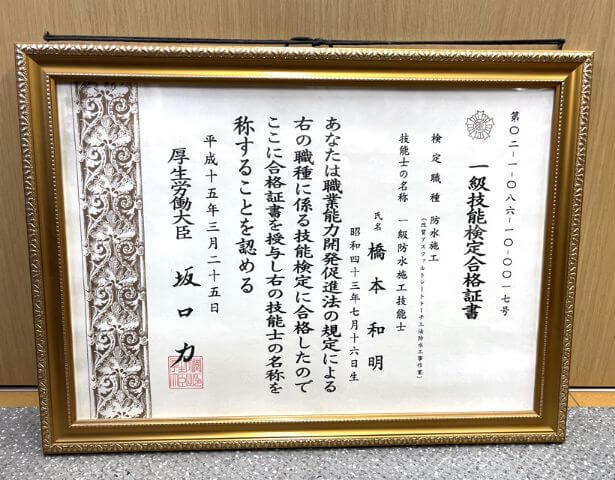 第〇二-一-〇八六-一〇-〇〇一七号
一級技能検定合格証書
検定職種 防水施工
(改質アスファルトシートトーチ工法防水工事作業)
技能士の名称 一級防水施工技能士
氏名 橋本和明
昭和四十三年七月十六日生
あなたは職業能力開発促進法の規定による
右の職種に係る技能検定に合格したので
ここに合格証書を授与し右の技能士の名称を
称することを認める
平成十五年三月二十五日
厚生労働大臣 坂口力